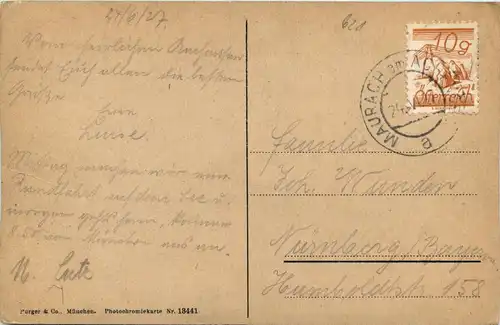 24/6/27
Vom herrlichen Achensee
sendet Euch allen die besten
Grüße
Eure
Luise.
Mittag machen wir eine
Rundfahrt auf dem See u.
morgen geht's heim, kommen
München an.
Porger & Co., München. Photochromiekarte Nr. 13441.
10g
Österreich
MAURACH am ACHENSEE
Familie
Joh. Wunder
Nürnberg/Bayern
Humboldtstr 158